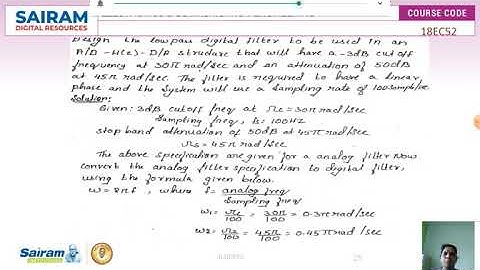 SAIRAM
DIGITAL RESOURCES
COURSE CODE
18EC52
Design the lowpass digital filter to be used in an
A/D - H(z) - D/A structure that will have a -3dB cut off
frequency at 30π rad/sec and an attenuation of 50dB
at 45π rad/sec. The filter is required to have a linear
phase and the system will use a sampling rate of 100 samples/sec
Solution:
Given: 3dB cutoff freq at Ωc = 30π rad/sec
Sampling freq, fs = 100HZ
Stop band attenuation of 50dB at 45π rad/sec
Ωs = 45π rad/sec
The above specification are given for a analog filter. Now
convert the analog filter specification to digital filter,
using the formula given below.
ω = 2πf, where f = analog freq
Sampling freq
ω1 = Ωc/100 = 30π/100 = 0.3π rad/sec
ω2 = Ωs/100 = 45π/100 = 0.45π rad/sec
Sairam